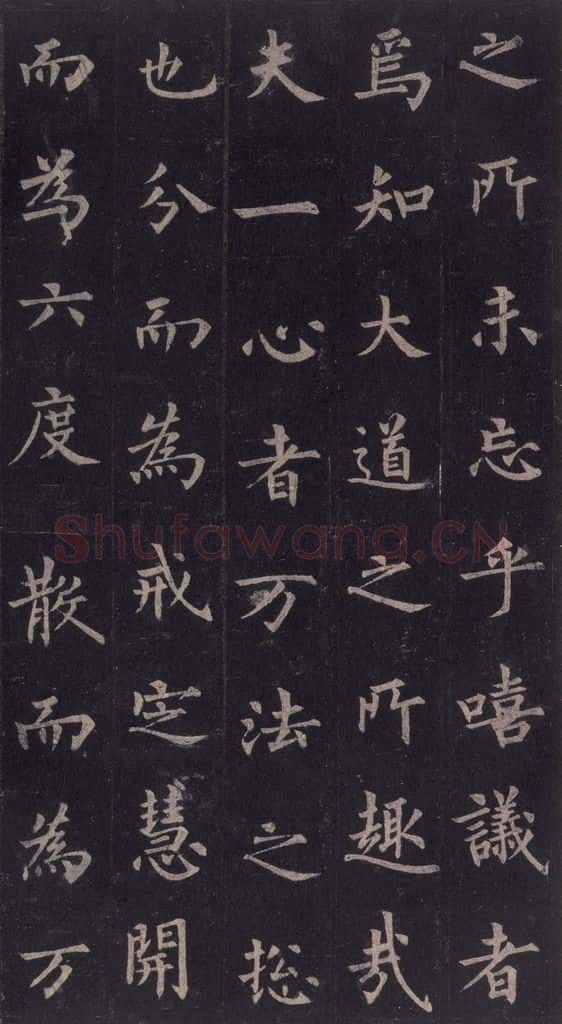 之所未忘乎嘻議者
焉知大道之所趣哉
夫一心者万法之揔
也分而為戒定慧開
而為六度散而為万
Shufawang.CN